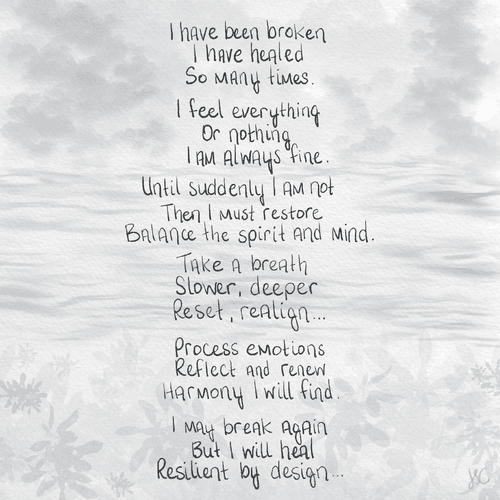 I have been broken
I have healed
So many times.
I feel everything
Or nothing
I am always fine.
Until suddenly I am not
Then I must restore
Balance the spirit and mind.
Take a breath
Slower, deeper
Reset, realign...
Process emotions
Reflect and renew
Harmony I will find.
I may break again
But I will heal
Resilient by design...